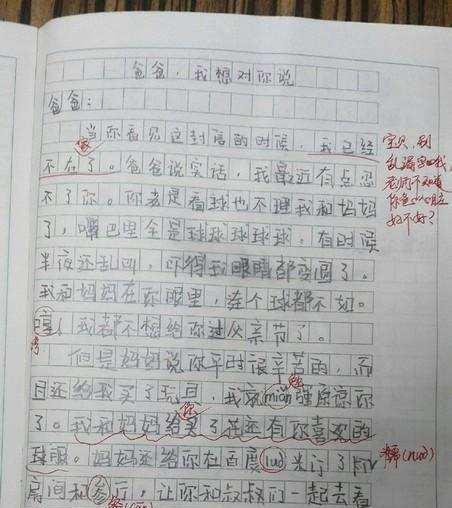 爸爸,我想对你说
爸爸:
当你看见这封信的时候,我已经
不在了。爸爸说实话,我最近有点忍
不了你。你老是看球也不理我和妈妈
了,嘴巴里全是球球球球球。有时候
半夜还乱叫,吓得我眼睛都变圆了。
我和妈妈在你眼里,连个球都不如。
我都不想给你过父亲节了。
但是妈妈说你平时很辛苦的,而
且还给我买了玩具,我就miǎn强原谅你
勉
了。我和妈妈给买了花还有你喜欢的
你
球服。妈妈还给你在百度nuò米订了
糯(nuò)
房间和餐厅,让你和叔叔们一起去看
宝贝,别
老师不知道
好不好?